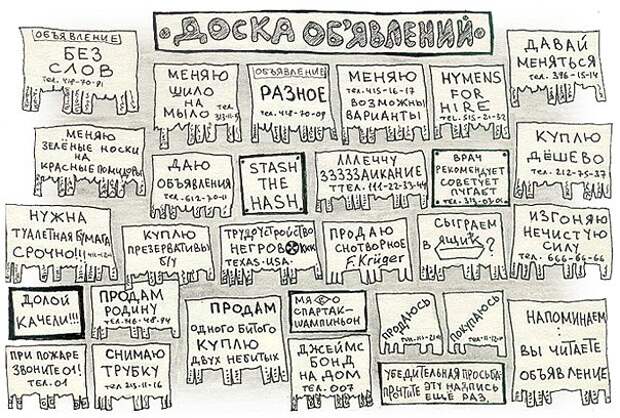 ДОСКА ОБ'ЯВЛЕНИЙ
ОБЪЯВЛЕНИЕ
БЕЗ
СЛОВ
МЕНЯЮ
ШИЛО
НА
МЫЛО тел.
ОБЪЯВЛЕНИЕ
РАЗНОЕ
тел. 418-70-09
МЕНЯЮ
тел. 415-16-17
ВОЗМОЖНЫ
ВАРИАНТЫ
HYMENS
FOR
HIRE
тел. 515-21-32
ДАВАЙ
МЕНЯТЬСЯ
тел. 396-15-14
МЕНЯЮ
ЗЕЛЁНЫЕ НОСКИ
НА
КРАСНЫЕ ПОМИДОРЫ
ДАЮ
ОБЪЯВЛЕНИЯ
тел. 612-70-11
STASH
THE
HASH
ЛЛЛЕЧЧУ
ЗЗЗЗЗАИКАНИЕ
ТТЕЛ. 111-22-33-44
ВРАЧ
РЕКОМЕНДУЕТ
СОВЕТУЕТ
ПУГАЕТ
тел. 313-03-01
КУПЛЮ
ДЁШЕВО
тел. 212-75-37
НУЖНА
ТУАЛЕТНАЯ БУМАГА
СРОЧНО!!!
КУПЛЮ
ПРЕЗЕРВАТИВЫ
Б/У
ТРУДОУСТРОЙСТВО
НЕГРОВ KKK
TEXAS·USA·
ПРОДАЮ
СНОТВОРНОЕ
F. Krüger
СЫГРАЕМ
В ЯЩИК?
ИЗГОНЯЮ
НЕЧИСТУЮ
СИЛУ
тел. 666-66-66
ДОЛОЙ
КАЧЕЛИ!!!
ПРОДАМ
РОДИНУ
ПРОДАМ
ОДНОГО БИТОГО
КУПЛЮ
ДВУХ НЕБИТЫХ
СПАРТАК-
ШАМПИНЬОН
ПРОДАЮСЬ
ПОКУПАЮСЬ
НАПОМИНАЕМ:
ВЫ ЧИТАЕТЕ
ОБЪЯВЛЕНИЕ
ПРИ ПОЖАРЕ
ЗВОНИТЕ 01!
ТЕЛ. 01
СНИМАЮ
ТРУБКУ
тел. 215-11-16
ДЖЕЙМС
БОНД
НА ДОМ
тел. 007
УБЕДИТЕЛЬНАЯ ПРОСЬБА:
ПРОЧТИТЕ ЭТУ НАДПИСЬ
ЕЩЁ РАЗ.